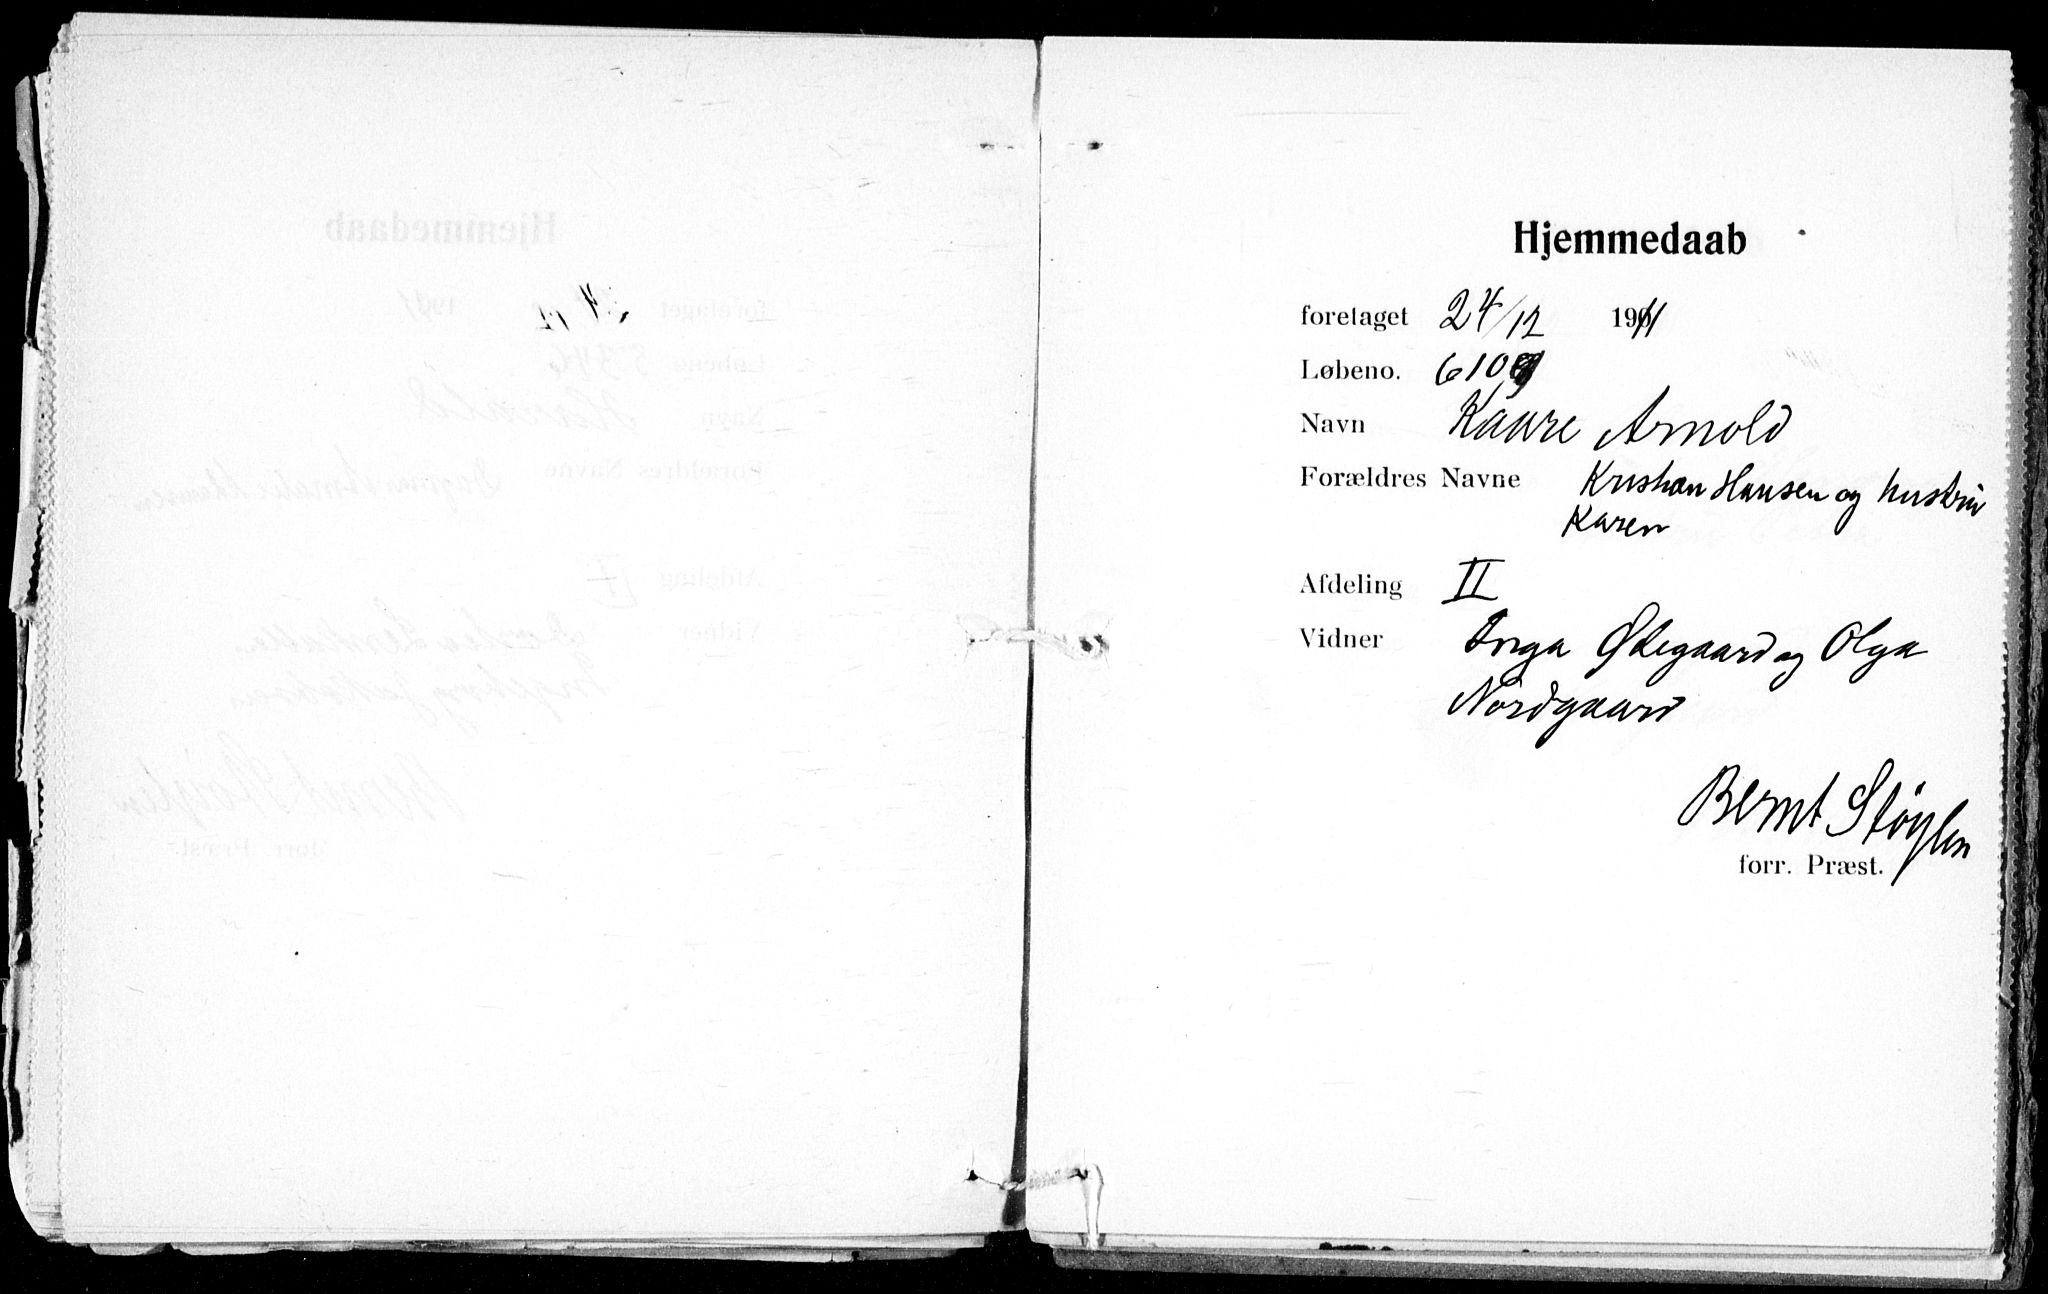 Hjemmedaab
foretaget 24/12 1911
Løbeno. 6109
Navn Kaare Arnold
Forældres Navne Kristian Hansen og hustru
Karen
Afdeling II
Vidner Inga Ødegaard og Olga
Nordgaard
Bernt Støylen
forr. Præst.